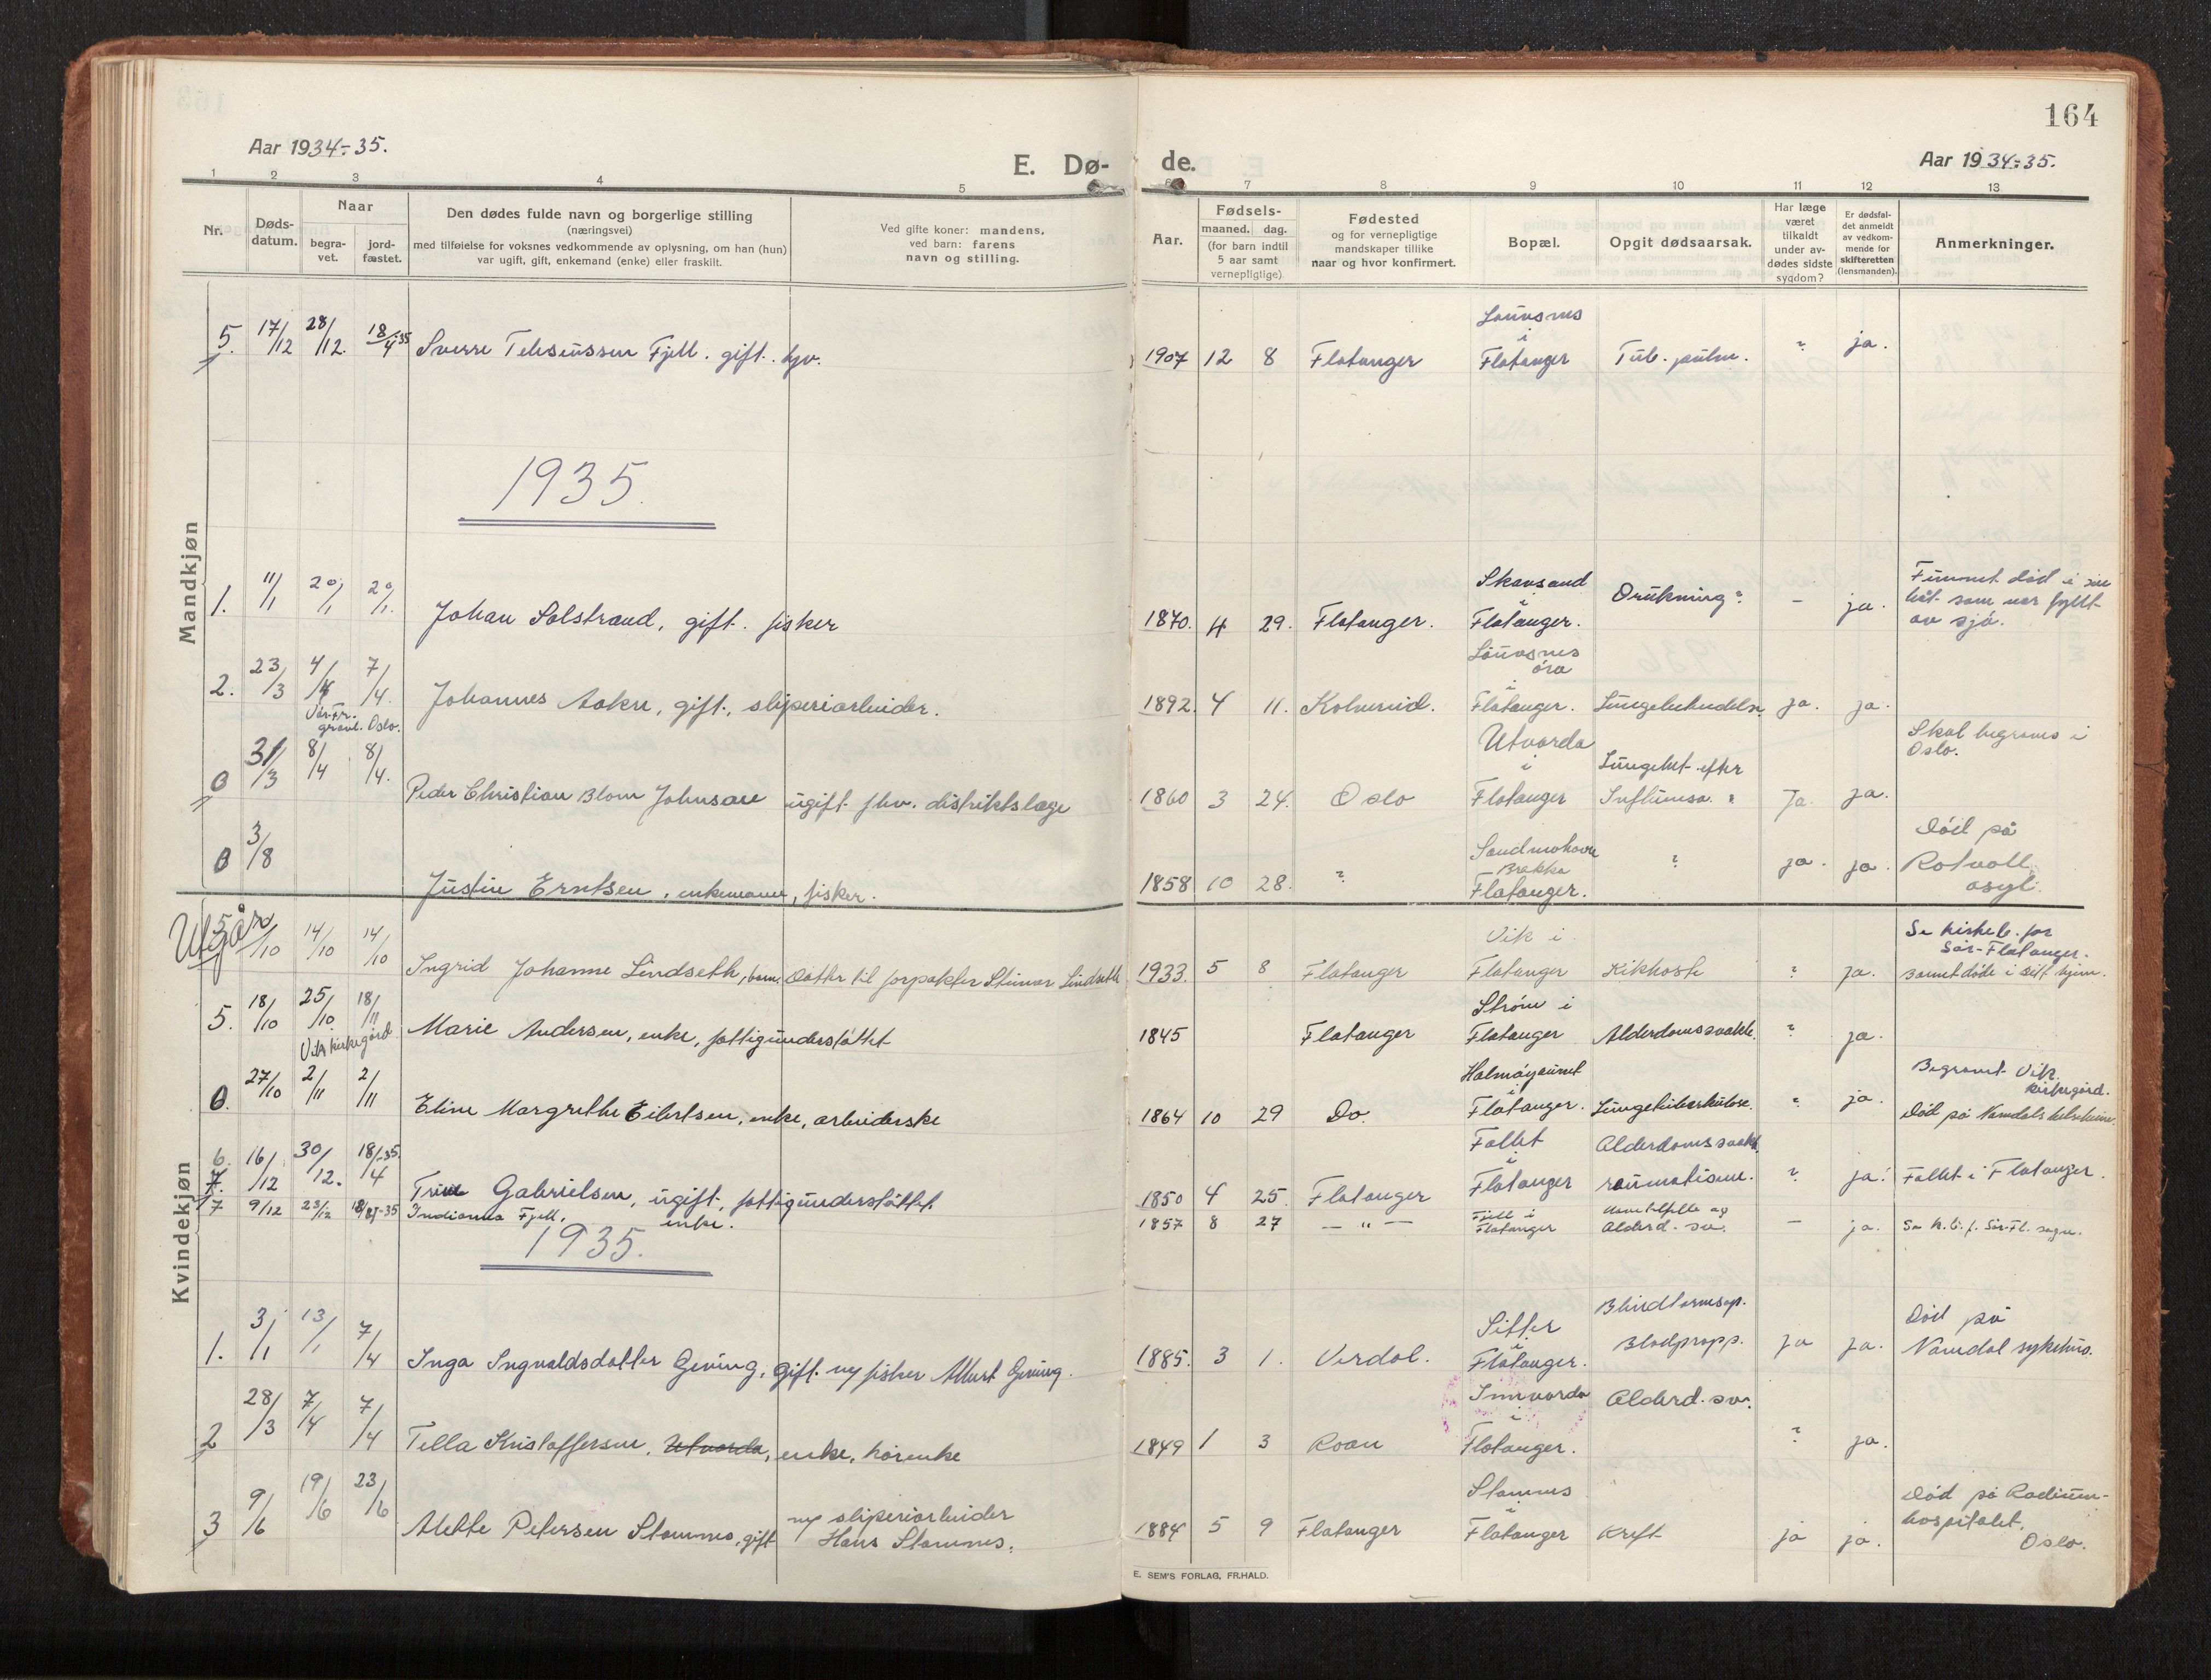 164
Aar 1934-35.
E. Dø- de.
Aar 1934-35.
1 2 3 4 5 6 7 8 9 10 11 12 13
Nr.
Døds-
datum.
Naar
begra-
vet.
jord-
fæstet.
Den dødes fulde navn og borgerlige stilling
(næringsvei)
med tilføielse for voksnes vedkommende av oplysning, om han (hun)
var ugift, gift, enkemand (enke) eller fraskilt.
Ved gifte koner: mandens,
ved barn: farens
navn og stilling.
Aar.
Fødsels-
maaned. dag.
(for barn indtil
5 aar samt
vernepligtige)
Fødested
og for vernepligtige
mandskaper tillike
naar og hvor konfirmert.
Bopæl.
Opgit dødsaarsak.
Har læge
været
tilkaldt
under av-
dødes sidste
sygdom?
Er dødsfal-
det anmeldt
av vedkom-
mende for
skifteretten
(lensmanden).
Anmerkninger.
Mandkjøn
5. 17/12 28/12. 18/4 35 Sverre Fjell. gift. 1907 12 8 Flatanger Lauvsnes i Flatanger Tub. pulm. ? ja.
1935.
1. 11/1 20/1 20/1. Johan Solstrand, gift. fisker 1870. 4 29. Flatanger. Skavsand i Flatanger. Drukning? - ja. Funnet død i sin
båt som var fyllt
av sjø.
2. 23/3 4/4 7/4. Johannes Aakre, gift., sliperiarbeider. 1892. 4 11. Kolvereid. Lauvsnes
øra
i
Flatanger. Lungebetendelse. ja. ja.
Vår Fr.
gravl. Oslo.
0 31/3 8/4 8/4. Peder Christian Blom Johnsen ugift fhv. distriktslæge 1860 3 24. Oslo Utvorda i Flatanger Lungebet. efter
Influensa. Ja. ja. Skal begraves i
Oslo.
0 3/8 Justin Erntsen, enkemann, fisker. 1858 10 28. ? Sandmohavn
Brakka
Flatanger. ? ja. ja. Død på
Rotvoll
asyl.
Kvindekjøn
Utgår 5/10 14/10 14/10 Ingrid Johanne Lindseth, barn. Datter til forpakter Steinar Lindseth 1933. 5 8 Flatanger Vik i
Flatanger Kikhoste ? ja. Se kirkeb. for
Sør-Flatanger.
Barnet døde i sitt hjem.
5. 18/10 25/10 18/11 Marie Andersen, enke, fattigunderstøttet 1845 Flatanger Strøm i
Flatanger Alderdomssvakh. ? ja.
Vik kirkegård
0. 27/10 2/11 2/11 Eline Margrethe Eilertsen, enke, arbeiderske 1864 10 29 Do. Halmøyaunet
i
Flatanger. Lungetuberkulose. ? ja. Begravet Vik
kirkegård.
Død på Namdals helseheim.
6. 7. 16/12 30/12. 18/4-35. Trine Gabrielsen, ugift, fattigunderstøttet. 1850 4 25. Flatanger Fallet
i
Flatanger Alderdomssvakh.
raumatisme. ? ja. Fallet i Flatanger.
7 9/12 23/12 18/8-35 Indianna Fjell, enke. 1857 8 27 — " — Fjell i
Flatanger
Alderd. sv. - ja. Se K.b. f. Sør-Fl. sogn.
1935.
1. 3/1 13/1 7/4 Inga Ingvaldsdatter Geving, gift. m/ fisker Albert Geving. 1885. 3 1. Verdal. Sitter
i
Flatanger. Blindtarmsop.
Blodpropp. ja ja. Død på
Namdal sykehus.
2 28/3 7/4 7/4 Tella Kristoffersen, Utvorda, enke, kårenke 1849 1 3 Roan Innvorda
i
Flatanger. Alderd. sv. ? ja.
3 9/6 19/6 23/6 Alette Petersen Stamnes, gift m/ sliperiarbeider
Hans Stamnes. 1884 5 9 Flatanger Stamnes
i
Flatanger Kreft ja ja. Død på Radium-
hospitalet.
Oslo.
E. SEM'S FORLAG, FR.HALD.